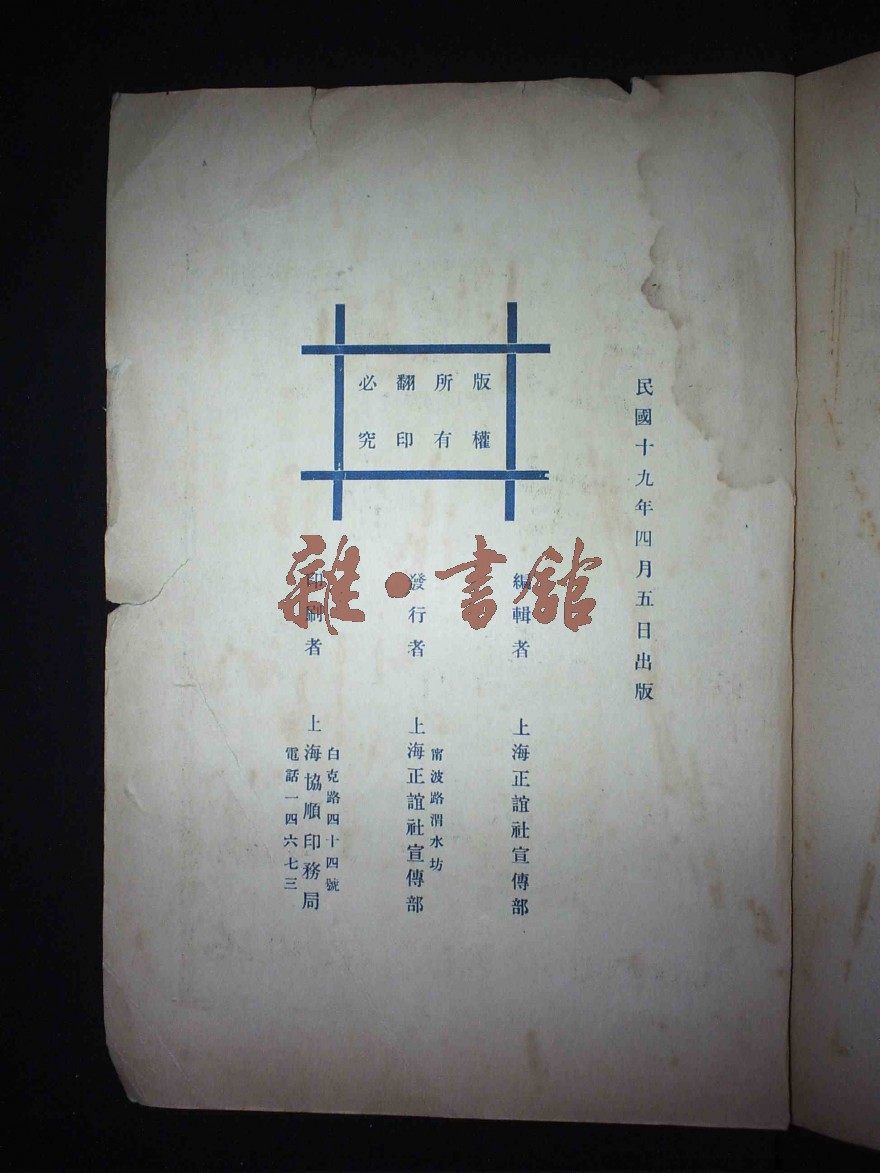 民國十九年四月五日出版
版權
所有
翻印
必究
編輯者 上海正誼社宣傳部
發行者 上海正誼社宣傳部
甯波路渭水坊
印刷者 上海協順印務局
白克路四十四號
電話一四六七三
雜·書館